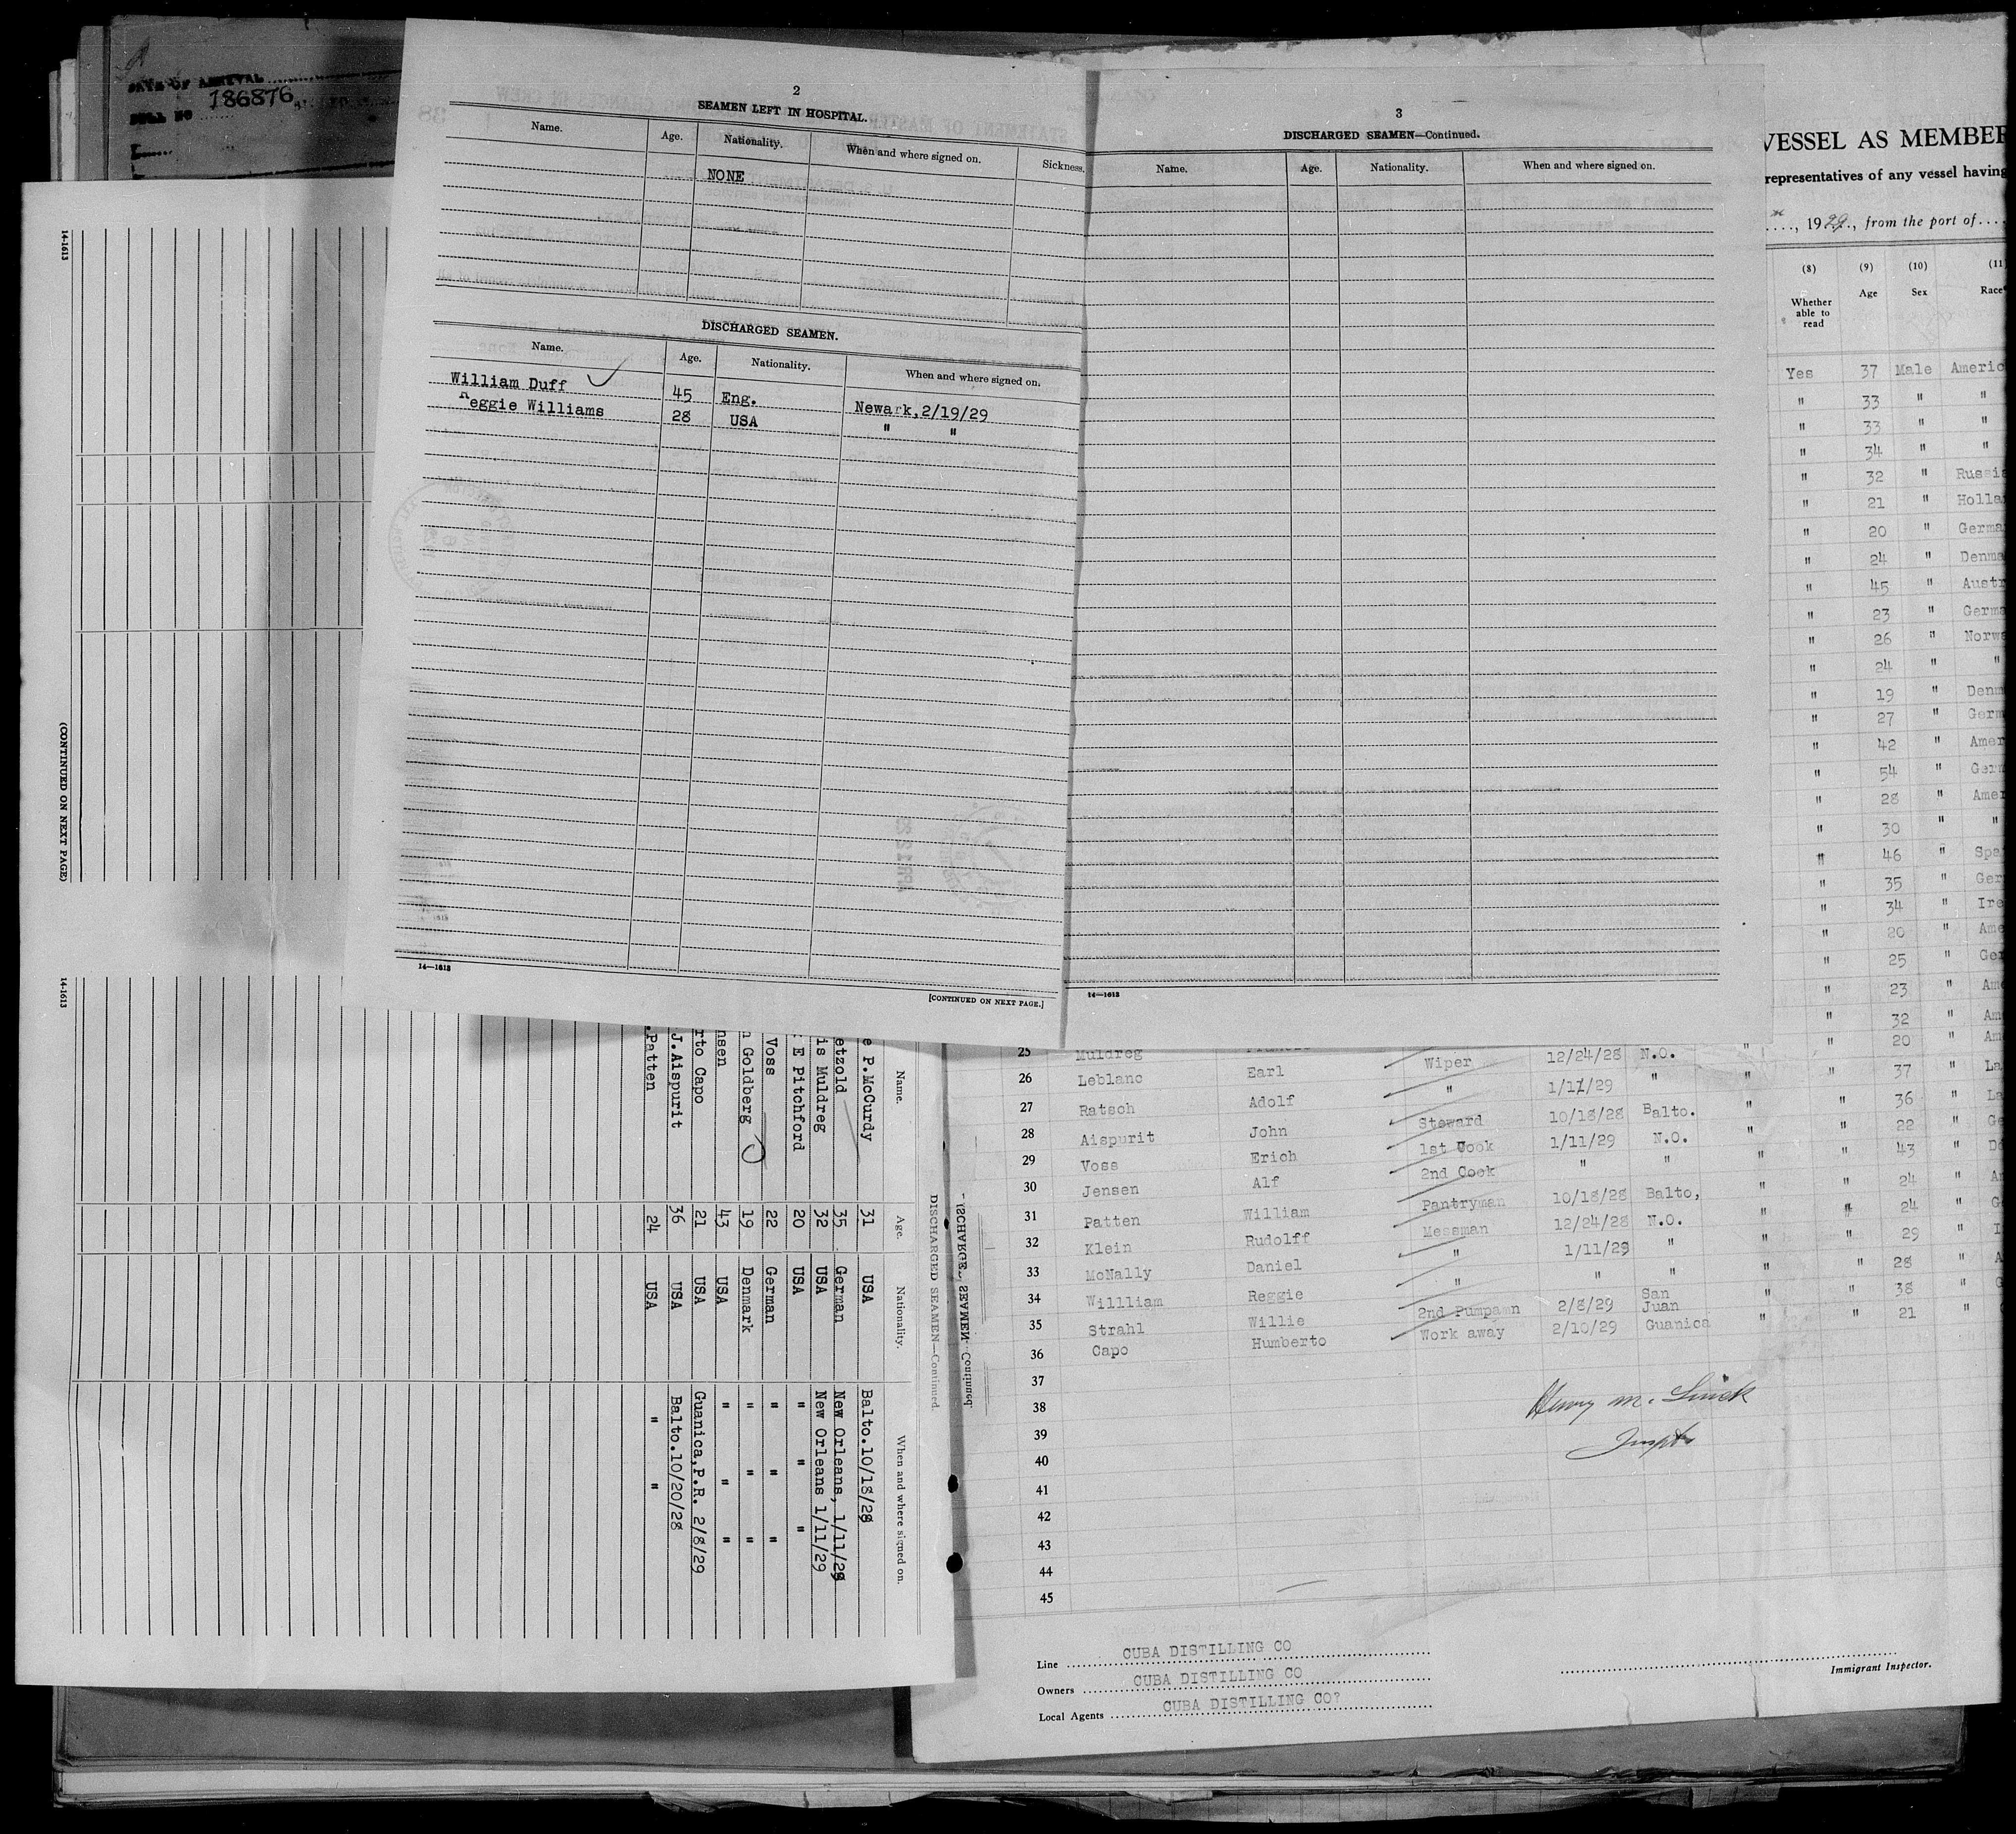 DATE OF ARRIVAL
186876
2
SEAMEN LEFT IN HOSPITAL.
Name. Age. Nationality. When and where signed on. Sickness.
NONE
DISCHARGED SEAMEN.
Name. Age. Nationality. When and where signed on.
William Duff 45 Eng. Newark,2/19/29
Reggie Williams 28 USA " "
14—1613
[CONTINUED ON NEXT PAGE.]
3
DISCHARGED SEAMEN—Continued.
Name. Age. Nationality. When and where signed on.
14—1613
VESSEL AS MEMBER
representatives of any vessel having
...., 1929., from the port of....
(8) (9) (10) (11
Whether able to read Age Sex Race
Yes 37 Male Americ
" 33 " "
" 33 " "
" 34 " "
" 32 " Russia
" 21 " Holla
" 20 " Germa
" 24 " Denma
" 45 " Austr
" 23 " Germa
" 26 " Norwe
" 24 " "
" 19 " Denm
" 27 " Germ
" 42 " Amer
" 54 " Germ
" 28 " Amer
" 30 " "
" 46 " Spa
" 35 " Ger
" 34 " Ire
" 20 " Ame
" 25 " Ger
" 23 " Ame
" 32 " Am
" 20 " Am
" 37 " La
" 36 " La
" 22 " Ge
" 43 " De
" 24 " Am
" 24 " G
" 29 " I
" 28 " A
" 38 " G
" 21 "
25 Muldreg Wiper 12/24/28 N.O. "
26 Leblanc Earl " 1/11/29 " "
27 Ratsch Adolf Steward 10/18/28 Balto. "
28 Aispurit John 1st Cook 1/11/29 N.O. "
29 Voss Erich 2nd Cook " " "
30 Jensen Alf Pantryman 10/18/28 Balto, "
31 Patten William Messman 12/24/28 N.O. "
32 Klein Rudolff " 1/11/29 " "
33 McNally Daniel " " " "
34 Willliam Reggie 2nd Pumpamn 2/8/29 San Juan "
35 Strahl Willie Work away 2/10/29 Guanica "
36 Capo Humberto
37
38
39
40
41
42
43
44
45
Henry M. Linick
Inspt
Line CUBA DISTILLING CO
Owners CUBA DISTILLING CO
Local Agents CUBA DISTILLING CO?
Immigrant Inspector.
14-1613
(CONTINUED ON NEXT PAGE)
14-1613
DISCHARGED SEAMEN—Continued.
Name. Age. Nationality. When and where signed on.
e P.McCurdy 31 USA Balto.10/18/28
etzold 35 German New Orleans, 1/11/29
is Muldreg 32 USA New Orleans 1/11/29
E Pitchford 20 USA " " "
Voss 22 German " " "
n Goldberg 19 Denmark " " "
nsen 43 USA " " "
rto Capo 21 USA Guanica,P.R. 2/8/29
J.Aispurit 36 USA Balto.10/20/28
.Patten 24 USA " "